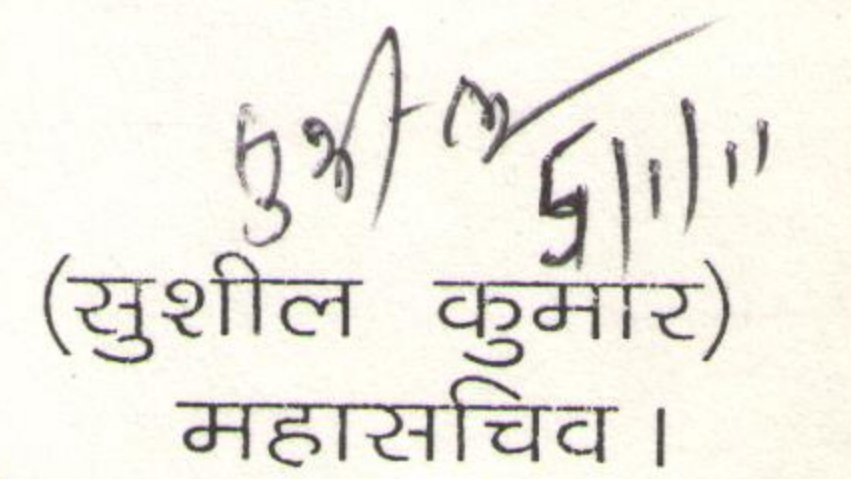 सुशील 5/1/11
(सुशील कुमार)
महासचिव।